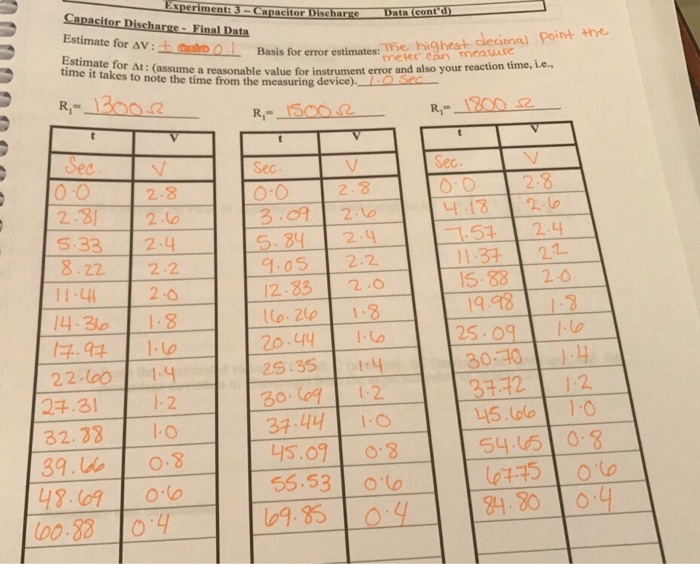 Experiment: 3 – Capacitor Discharge Data (cont'd)
Capacitor Discharge - Final Data
Estimate for ΔV: ± 0.1 Basis for error estimates: The highest decimal point the
meter can measure
Estimate for Δt: (assume a reasonable value for instrument error and also your reaction time, i.e.,
time it takes to note the time from the measuring device). 1.0 sec
R₁= 1300 Ω R₁= 1500 Ω R₁= 1800 Ω
t V t V t V
Sec. V Sec. V Sec. V
0.0 2.8 0.0 2.8 0.0 2.8
2.81 2.6 3.09 2.6 4.18 2.6
5.33 2.4 5.84 2.4 7.57 2.4
8.22 2.2 9.05 2.2 11.37 2.2
11.41 2.0 12.83 2.0 15.88 2.0
14.36 1.8 16.26 1.8 19.98 1.8
17.97 1.6 20.44 1.6 25.09 1.6
22.60 1.4 25.35 1.4 30.70 1.4
27.31 1.2 30.69 1.2 37.72 1.2
32.88 1.0 37.44 1.0 45.66 1.0
39.66 0.8 45.09 0.8 54.65 0.8
48.69 0.6 55.53 0.6 67.75 0.6
60.88 0.4 69.85 0.4 84.80 0.4